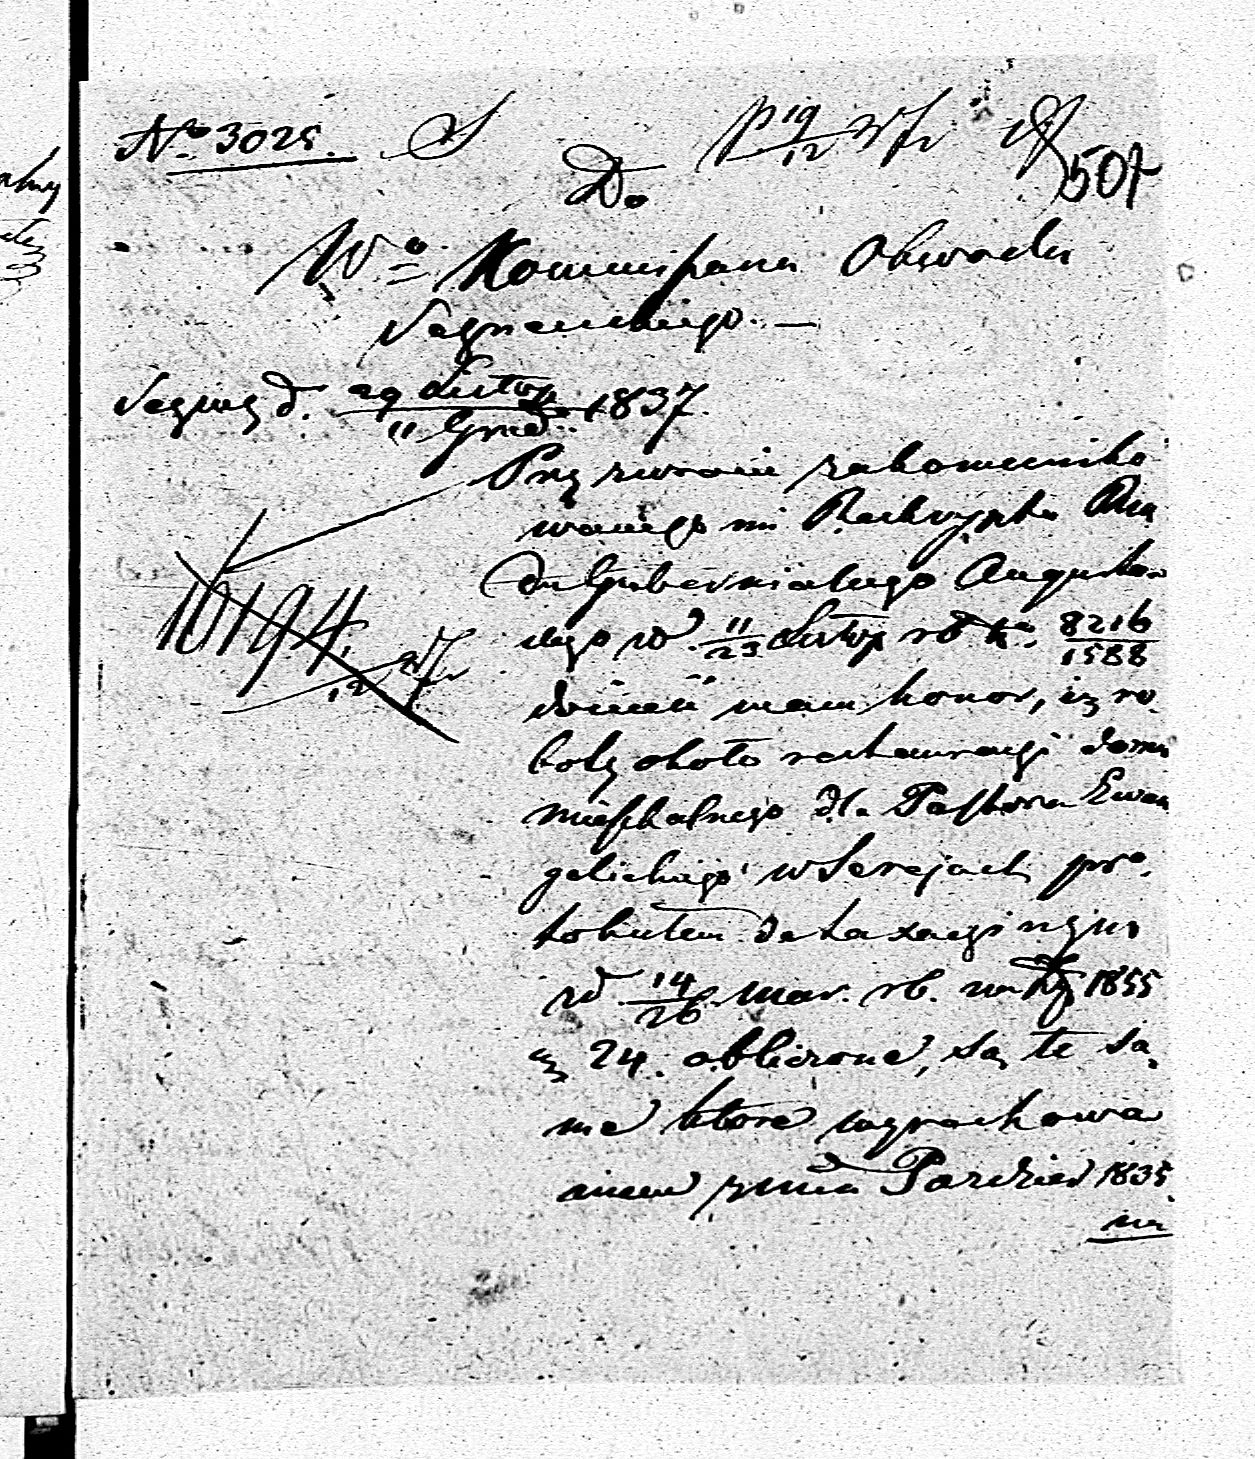 No 3025.
507
Do
Wo Kommissarza Obwodu
Seyneńskiego. —
Seyny d. 29 Listop / 11 Grud. 1837.
Przy zwrocie zakommuniko
wanego mi Reskryptu Rzą
du Gubernialnego Augustow
skiego z d. 11/23 Listop rb No. 8216/1588
10194.
donieść mam honor, iż ro
boty około restauracyi domu
mieszkalnego dla Pastora Ewan
gelickiego w Serejach pro
tokułem detaxacyinym
z d. 14/26 Mar. rb. na 1855
24. obliczone, są te sa
me które wyrachowa
niem z dnia Pazdzier 1835
na